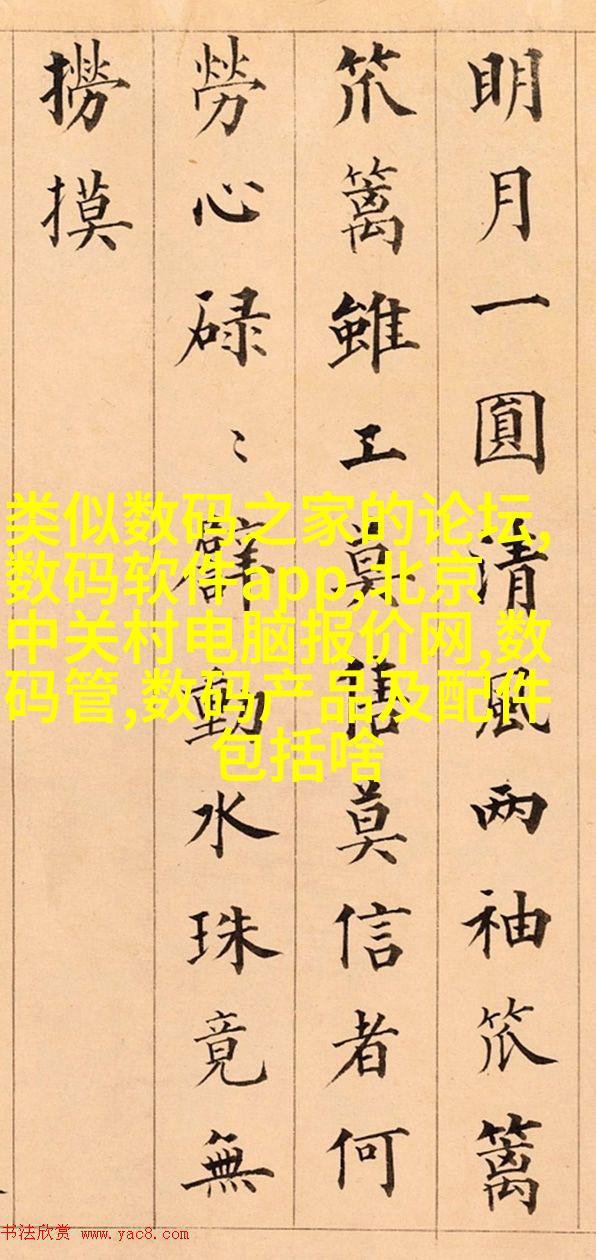 明月一圓清風两袖笊篱
笊篱雖工莫售莫信者何
勞心碌〻擘動水珠竟無
撈摸
类似数码之家的论坛,
数码软件app,北京
中关村电脑报价网,数
码管,数码产品及配件
包括啥
书法欣赏 www.yac8.com